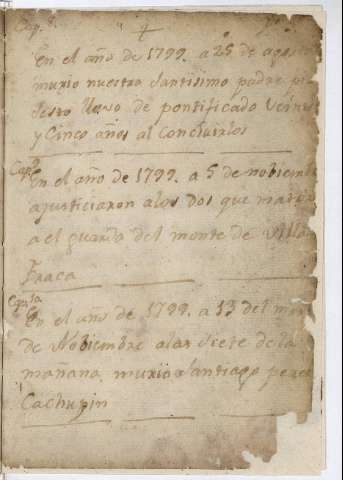 Cap. 8.
En el año de 1799. a 25 de agosto
murio nuestro santisimo padre pi
sesto de pontificado Veint
y Cinco años al Concluirlos
Cap. 9
En el año de 1799. a 5 de nobiemb
ajusticiaron a los dos que mat
a el guarda del monte de Villa
Fraca
En el año de 1799. a 13 del me
de Nobiembre a las Siete de la
mañana murio Santiago pere
Cachupin